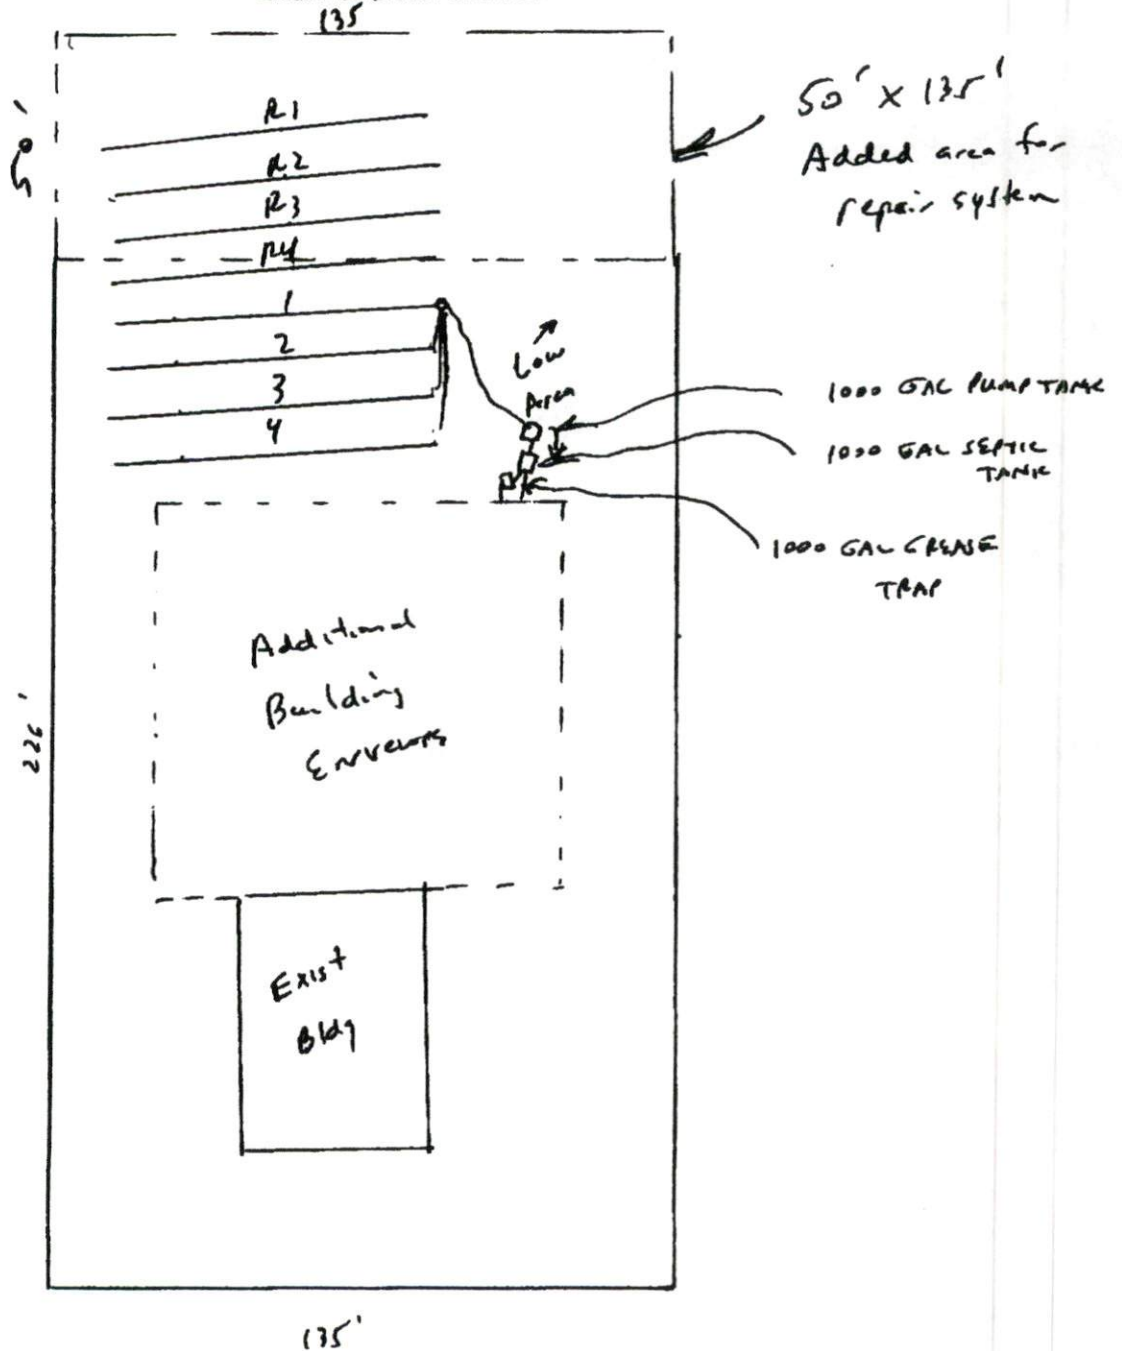 135
50'
50' x 135'
Added area for
repair system
R1
R2
R3
R4
1
2
3
4
Low
Area
1000 GAL PUMP TANK
1000 GAL SEPTIC
TANK
1000 GAL GREASE
TRAP
Additional
Building
Envelope
226'
Exist
Bldg
135'